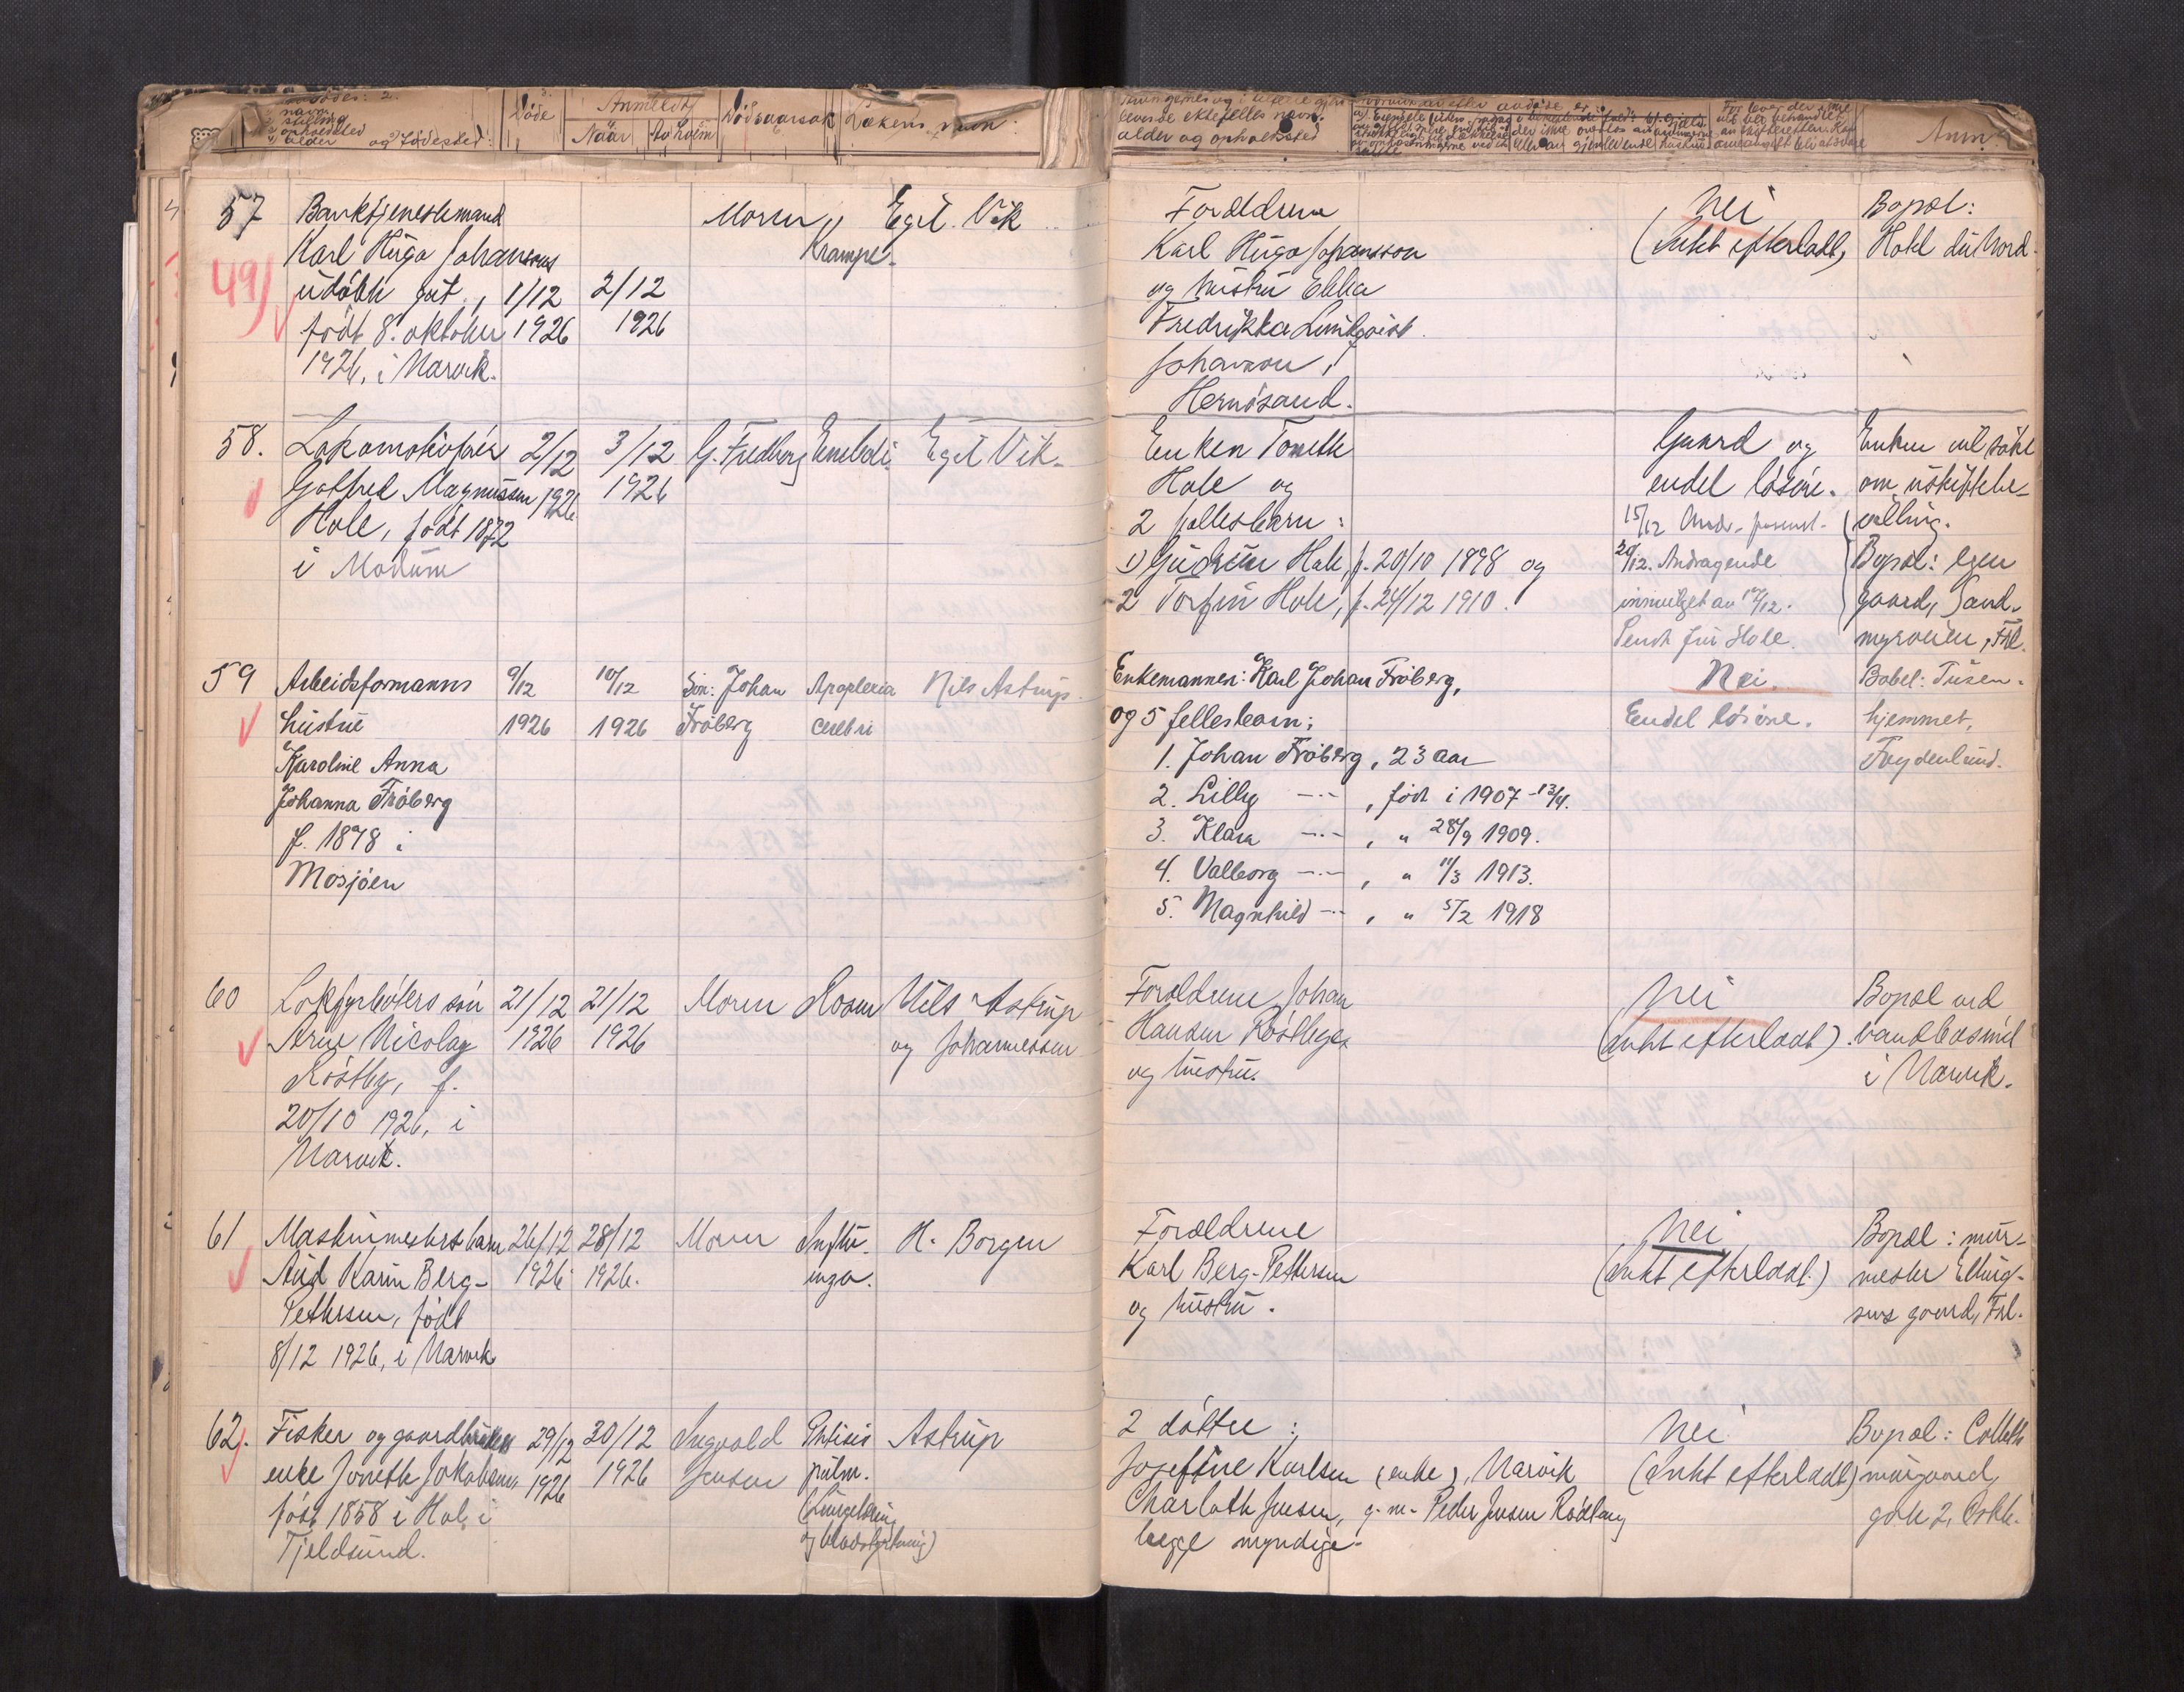 Døde
Anmeldt
Naar
Av hvem
Dødsaarsak
Lækens navn
stilling
opholdsted
alder og fødested:
levende ektefelles navn
alder og opholdssted
Anm.
57
49)
Bankfjenestemand
Karl Hugo Johanssons
udøbte gut,
født 8. oktober
1926, i Narvik.
1/12
1926
2/12
1926
Moren
Krampe.
Egil Vik
Forældrene
Karl Hugo Johansson
og hustru Ebba
Fredrikka Lindkvist
Johansson,
Hernösand.
Nei
(Intet efterladt)
Bopæl:
Hotel du Nord.
58.
Lokomotivfører
Gotfred Magnussen
Hole, født 1872
i Modum
2/12
1926
3/12
1926
G. Fredberg
Emboli
Egil Vik.
Enken Tomette
Hole og
2 fellesbarn:
1) Gudrun Hole, f. 20/10 1898 og
2 Torfin Hole, f. 24/12 1910.
Gaard og
endel løsøre.
15/12
20/12. Andragende
innvilget av 17/12.
Sendt fru Hole.
Enken vil søke
om uskiftebe-
villing.
Bopæl: egen
gaard, Sand-
myrveien, Frl.
59
Arbeidsformanns
hustru
Karoline Anna
Johanna Frøberg
f. 1878 i
Mosjøen
9/12
1926
10/12
1926
Søn: Johan
Frøberg
Apoplexia
cerebri
Nils Astrup.
Enkemannen: Karl Johan Frøberg,
og 5 fellesbarn:
1. Johan Frøberg, 23 aar
2. Lilly -"- , født i 1907 -13/4.
3. Klara -"- , " 28/9 1909.
4. Valborg -"- , " 11/3 1913.
5. Magnhild -"- , " 5/2 1918
Nei.
Endel løsøre.
Bopel: Tusen-
hjemmet,
Frydenlund.
60
Lokfyrbøters søn
Arne Nicolay
Røstby, f.
20/10 1926, i
Narvik.
21/12
1926
21/12
1926
Moren
Nils Astrup
og Johannessen
Forældrene Johan
Hansen Røstby
og hustru.
Nei
(Intet efterladt).
Bopæl ved
vandbasin
i Narvik.
61
Maskinmesters barn
Aud Karin Berg-
Pettersen, født
8/12 1926, i Narvik
26/12
1926
28/12
1926.
Moren
Influ-
enza.
H. Borgen
Forældrene
Karl Berg-Pettersen
og hustru.
Nei
(Intet efterladt.)
Bopæl: mur-
mester Elling-
sens gaard, Frl.
62.
Fisker og gaardbrukers
enke Jonette Jakobsen,
født 1858 i Hol, i
Tjeldsund.
29/12
1926
30/12
1926
Ingvald
Jensen
Phtisis
pulm.
(Lungebetæn
og blodstyrtning)
Astrup
2 døttre:
Josefine Karlsen (enke), Narvik
Charlotte Jensen, g. m. Peder Jensen Rødtang
begge myndige.
Nei
(Intet efterladt)
Bopæl: Colletts
murgaard,
gate 2,